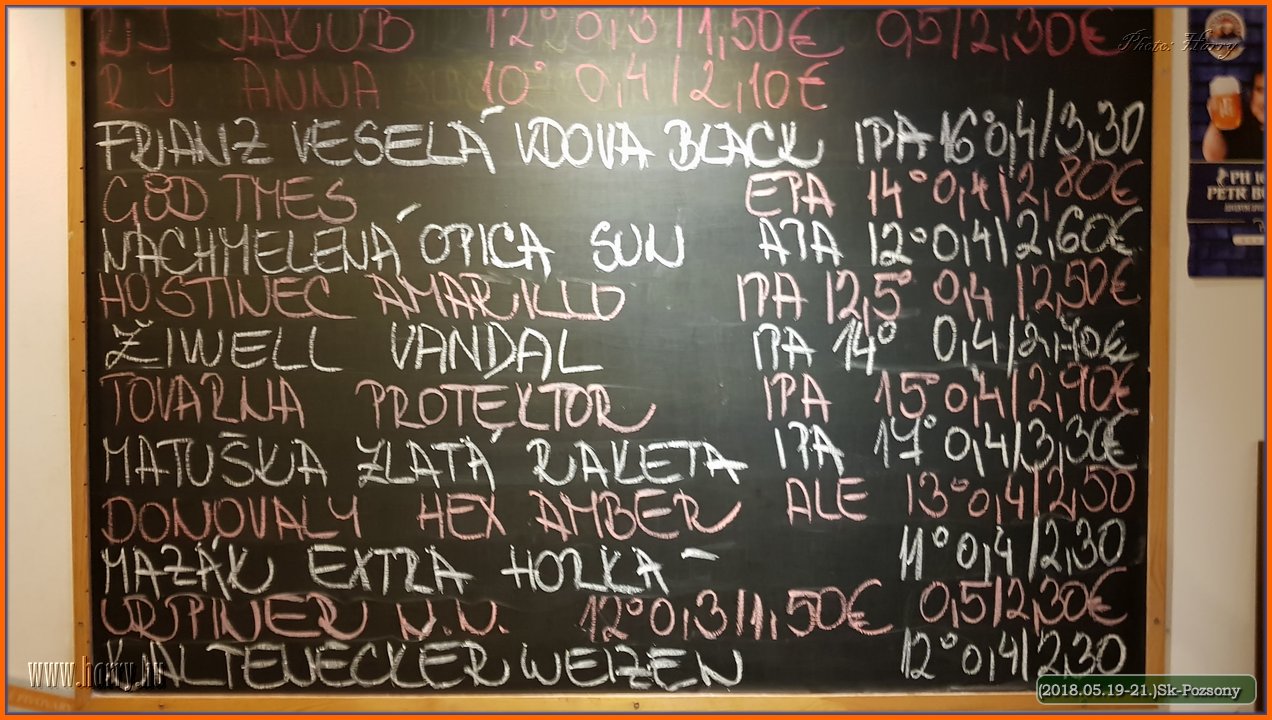 RJ JAKUB 12° 0,3/1,50€ 0,5/2,30€
Photo: Harry
RJ ANNA 10° 0,4/2,10€
FRIANZ VESELÁ VDOVA BLACK IPA 16° 0,4/3,30
GOD TMES EPA 14° 0,4/2,80€
NACHMELENÁ OPICA SUN APA 12° 0,4/2,60€
HOSTINEC AMARILLO IPA 12,5° 0,4/2,50€
ŽIWELL VANDAL IPA 14° 0,4/2,70€
TOVARNA PROTEKTOR IPA 15° 0,4/2,90€
MATUŠKA ZLATÁ RAKETA IPA 17° 0,4/3,30€
DONOVALY HEX AMBER ALE 13° 0,4/2,50
MAZÁK EXTRA HORKÁ 11° 0,4/2,30
URPINER N.N. 12° 0,3/1,50€ 0,5/2,30€
KALTENECKER WEIZEN 12° 0,4/2,30
www.harry.hu
(2018.05.19-21.)Sk-Pozsony
PETR